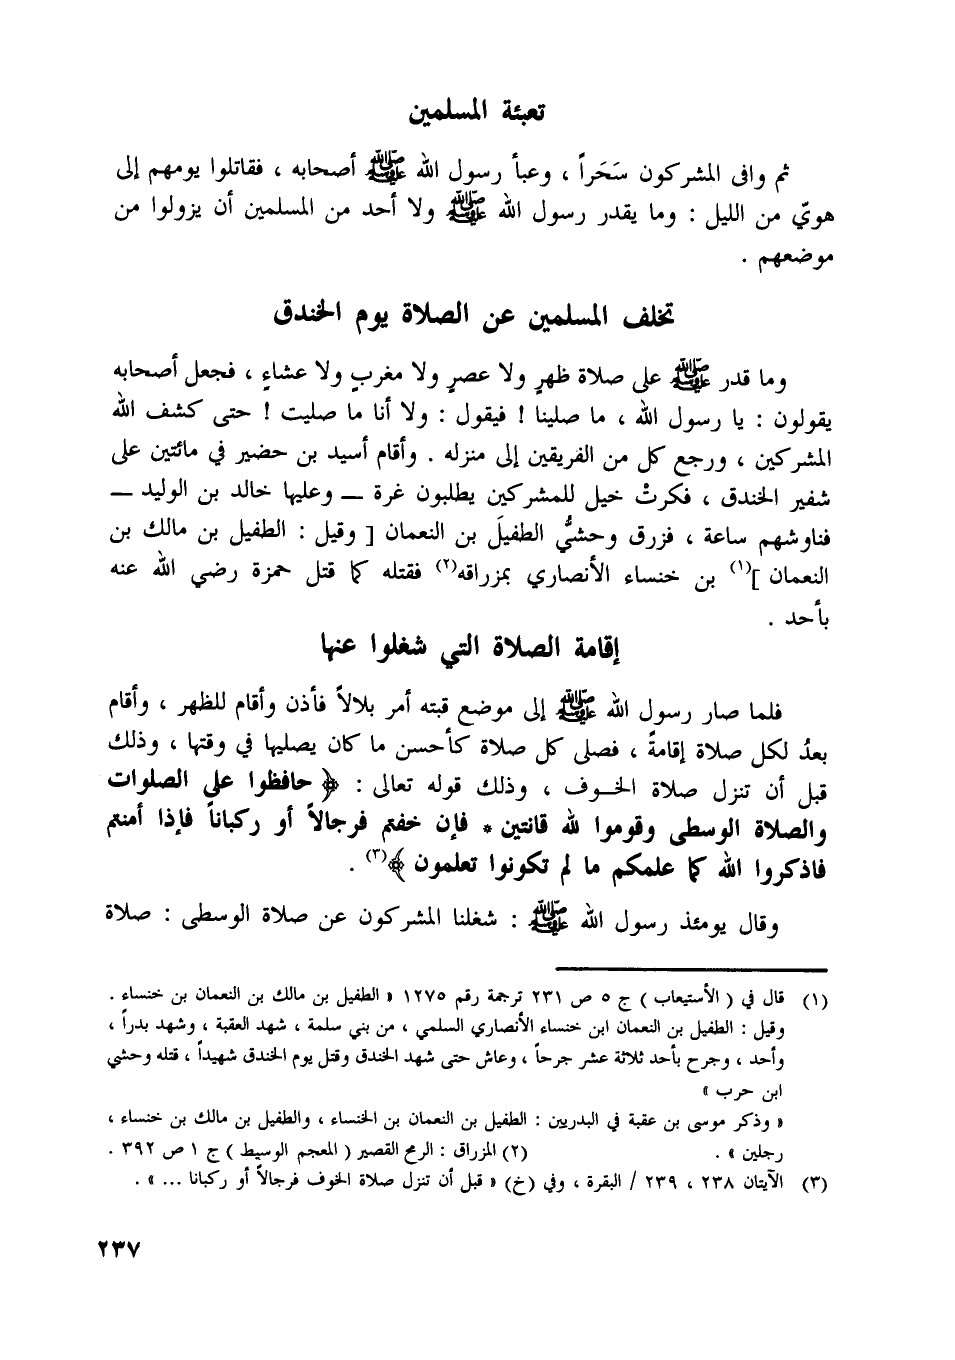 تعبئة المسلمين
ثم وافى المشركون سَحَراً ، وعبأ رسول الله ﷺ أصحابه ، فقاتلوا يومهم إلى
هويّ من الليل : وما يقدر رسول الله ﷺ ولا أحد من المسلمين أن يزولوا من
موضعهم .
تخلف المسلمين عن الصلاة يوم الخندق
وما قدر ﷺ على صلاة ظهرٍ ولا عصرٍ ولا مغربٍ ولا عشاءٍ ، فجعل أصحابه
يقولون : يا رسول الله ، ما صلينا ! فيقول : ولا أنا ما صليت ! حتى كشف الله
المشركين ، ورجع كل من الفريقين إلى منزله . وأقام أسيد بن حضير في مائتين على
شفير الخندق ، فكرتْ خيل للمشركين يطلبون غرة — وعليها خالد بن الوليد —
فناوشهم ساعة ، فزرق وحشيٌّ الطفيلَ بن النعمان [ وقيل : الطفيل بن مالك بن
النعمان ](١) بن خنساء الأنصاري بمزراقه(٢) فقتله كما قتل حمزة رضي الله عنه
بأحد .
إقامة الصلاة التي شغلوا عنها
فلما صار رسول الله ﷺ إلى موضع قبته أمر بلالاً فأذن وأقام للظهر ، وأقام
بعدُ لكل صلاة إقامةً ، فصلى كل صلاة كأحسن ما كان يصليها في وقتها ، وذلك
قبل أن تنزل صلاة الخـوف ، وذلك قوله تعالى : ﴿ حافظوا على الصلوات
والصلاة الوسطى وقوموا لله قانتين * فإن خفتم فرجالاً أو ركباناً فإذا أمنتم
فاذكروا الله كما علمكم ما لم تكونوا تعلمون ﴾(٣) .
وقال يومئذ رسول الله ﷺ : شغلنا المشركون عن صلاة الوسطى : صلاة
(١) قال في ( الأستيعاب ) ج ٥ ص ٢٣١ ترجمة رقم ١٢٧٥ « الطفيل بن مالك بن النعمان بن خنساء .
وقيل : الطفيل بن النعمان ابن خنساء الأنصاري السلمي ، من بني سلمة ، شهد العقبة ، وشهد بدراً ،
وأحد ، وجرح بأحد ثلاثة عشر جرحاً ، وعاش حتى شهد الخندق وقتل يوم الخندق شهيداً ، قتله وحشي
ابن حرب »
« وذكر موسى بن عقبة في البدريين : الطفيل بن النعمان بن الخنساء ، والطفيل بن مالك بن خنساء ،
رجلين » . (٢) المزراق : الرمح القصير ( المعجم الوسيط ) ج ١ ص ٣٩٢ .
(٣) الآيتان ٢٣٨ ، ٢٣٩ / البقرة ، وفي (خ) « قبل أن تنزل صلاة الخوف فرجالاً أو ركبانا ... » .
٢٣٧